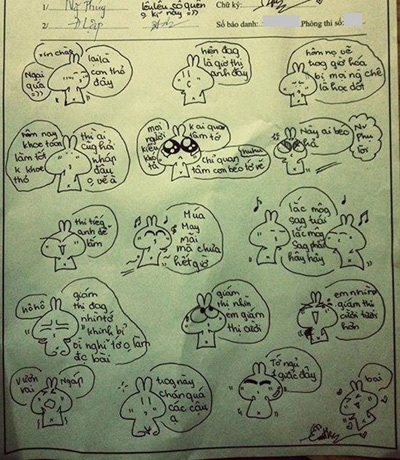 1/ Ng Thuỳ
2/
kỳ này =))
Chữ ký:
Số báo danh:
Phòng thi số:
xin chào
Ngại quá =))
lại là
con thỏ
đây
hiện đag
là giờ thi
anh đây
hôm nọ vẽ
trog giờ hóa
bị mọi ng chê
là học dốt
hôm nay
khoẻ toán
làm tớ
k khoẻ
thó
thì ai
cug fải
nháp
đây
mọi
người
kiểu
khó
tả
k ai quan
tâm tớ
huhu
chỉ quan
tâm con béo tớ vẽ
Này ai béo
hả
thi tiếg
anh dễ
lắm
Múa
May
mãi
mà chưa
hết giờ
lắc môg
sag trái
lắc môg
sag phải
hây hây
hô hô
giám
thị đag
nhìn tớ
khinh bỉ
vì nghĩ tớ o làm
đc bài
giám
thị nhìn
em giám
thị cười
em nhìn
giám thị
cười tươi
hơn
vươn
vai
Ngáp
trog này
chán quá
các cậu
ạ
Tớ ngủ
1 giấc đây
bai